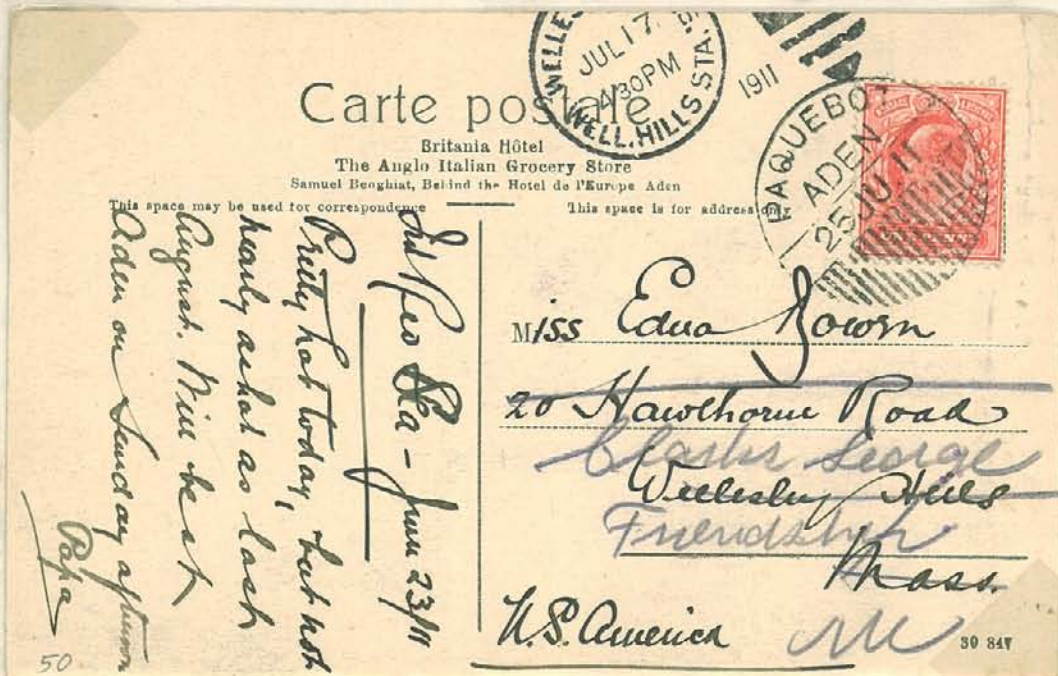 WELLES
JUL 17
4/30 PM
WELL. HILLS STA.
1911
Carte postale
Britania Hôtel
The Anglo Italian Grocery Store
Samuel Benghiat, Behind the Hotel de l'Europe Aden
This space may be used for correspondence
This space is for address only
PAQUEBOT
ADEN
25 JU 11
Red Sea - June 23/11
Pretty hot today, but not
nearly as hot as last
August. Will be at
Aden on Sunday afternoon
Papa
50
Miss Edna Bowen
20 Hawthorne Road
George
Wellesley Hills
Friendship
Mass.
Me
U.S. America
30 84V